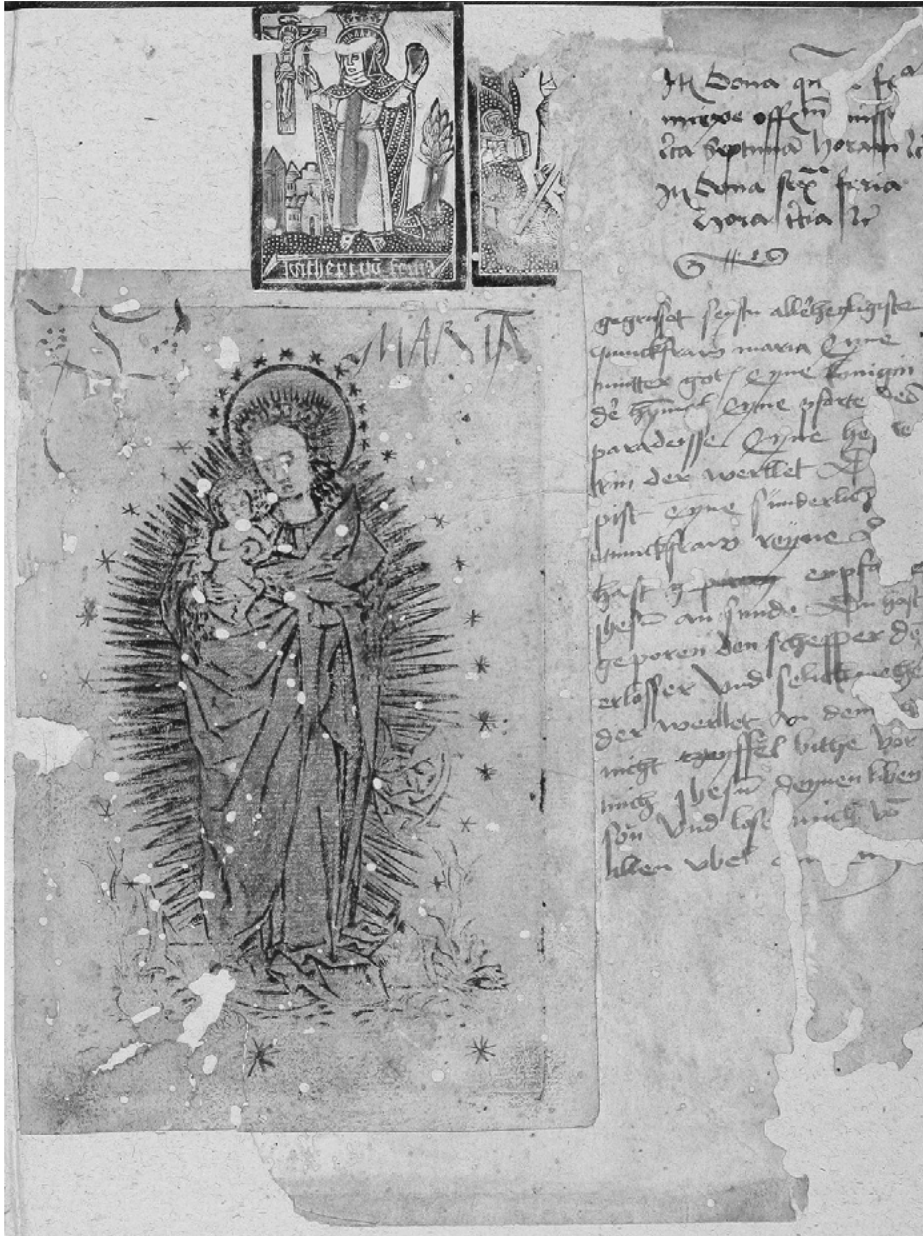 katherina senis
MARIA
In bona
offm miss
septimā horam
In bona sexͣ feria
hora
gegrusset seystu allerheyligiste
Junckfraw maria Eyne
mutter gotz Eyne konigin
der hymel Eyne pforte des
paradeisse Eyne he
rin der werllet
pist eyne sunderlich
Junckfraw reyne
hast empf
Jhesu an sunde Du hast
geporen den schepper de
erlosser vnd selickmecher
der werllet dem
nicht czweyffel bitte vor
mich Jhesu deynen liben
son vnd los mich vō
allen vbel